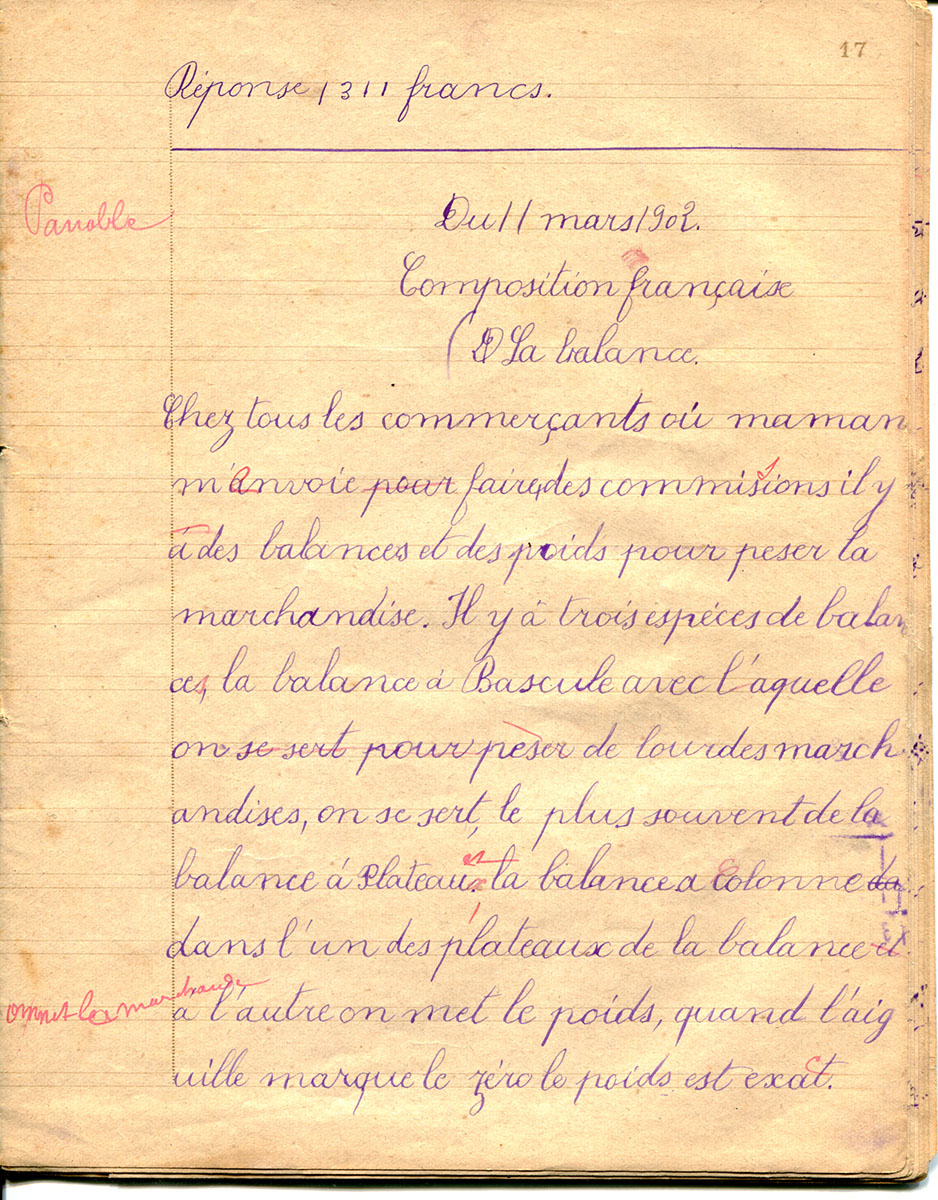 17
Réponse 1311 francs.
Passable
Du 11 mars 1902.
Composition française
La balance.
Chez tous les commerçants où maman
m'envoie pour faire des commisions il y
à des balances et des poids pour peser la
marchandise. Il y à trois espéces de balan
ces, la balance à Bascule avec l'aquelle
on se sert pour pèser de lourdes march
andises, on se sert, le plus souvent de la
balance à Plateau, et la balance a Colonne
dans l'un des plateaux de la balance et
on met la marchandise
a l'autre on met le poids, quand l'aig
uille marque le zéro le poids est exact.